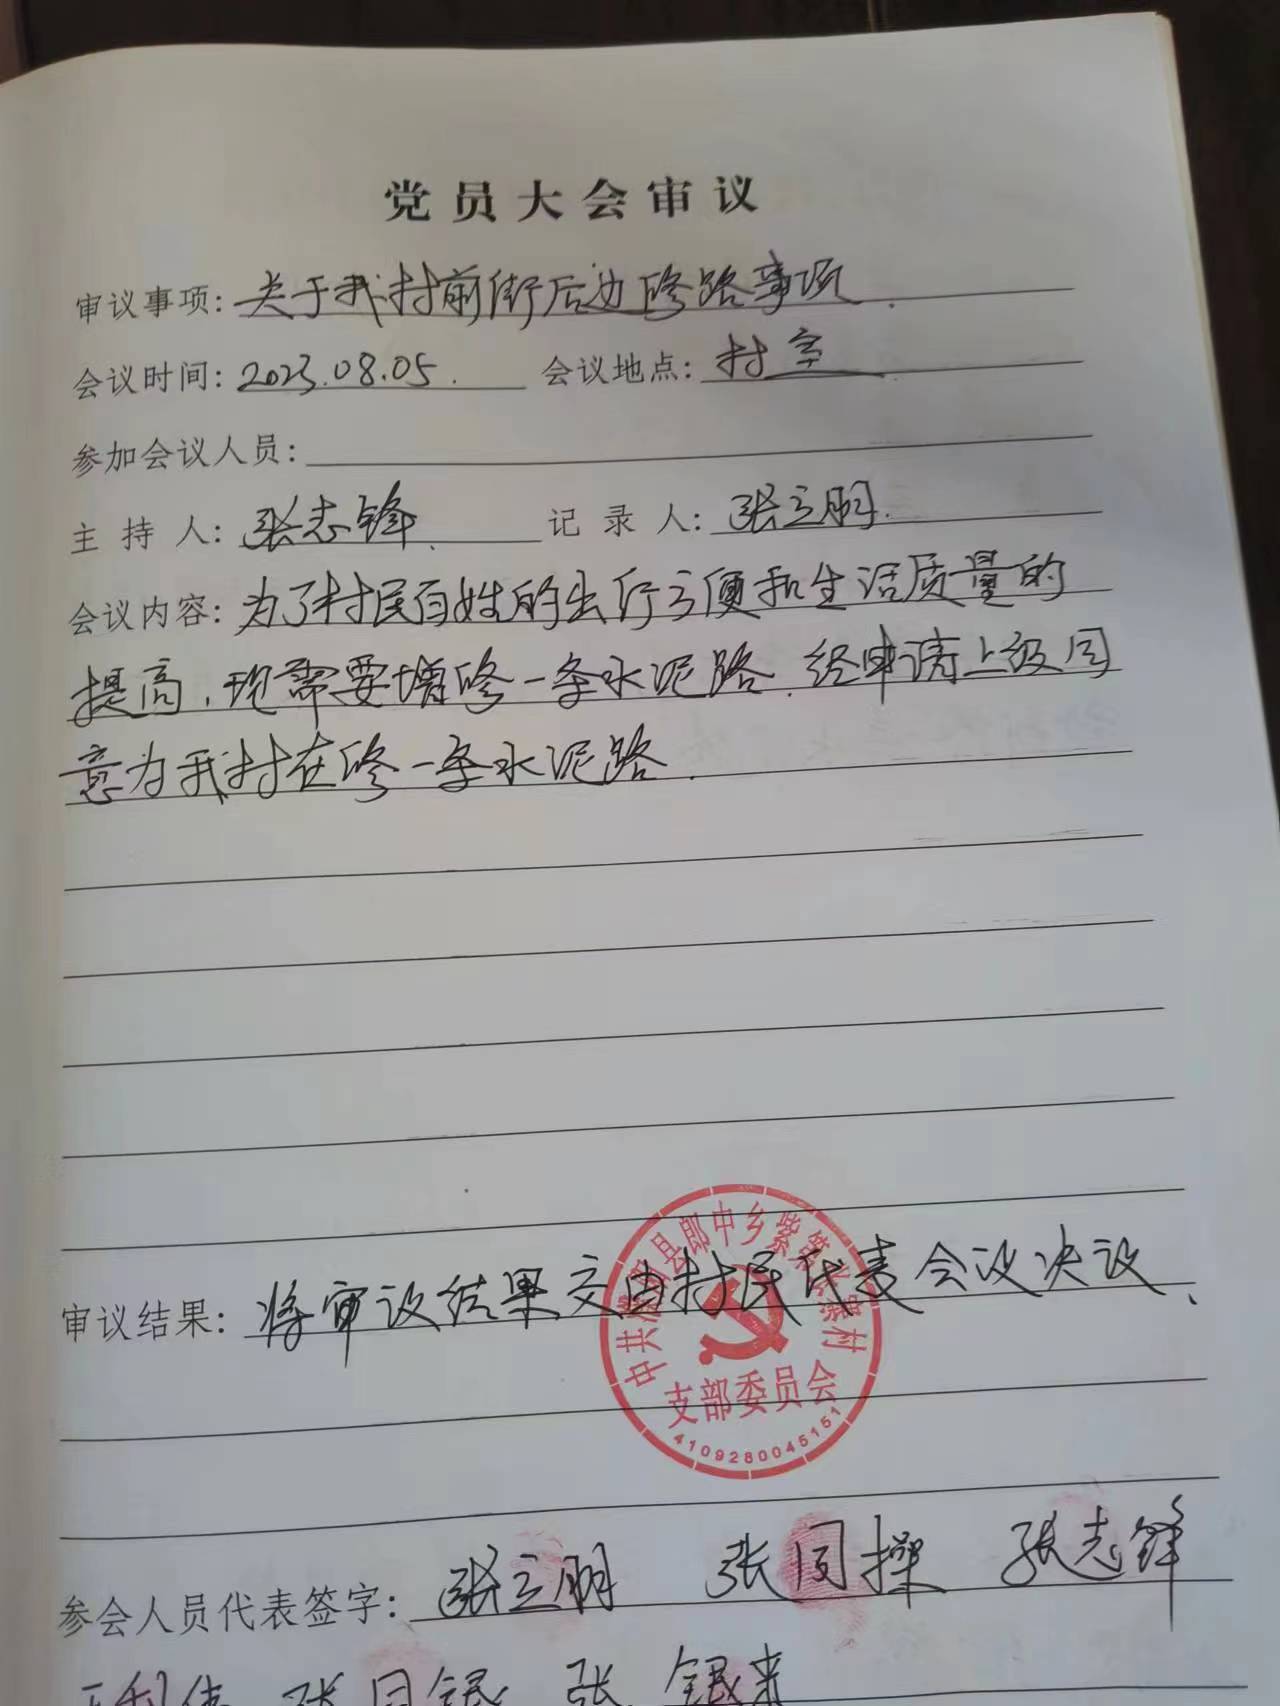 党员大会审议
审议事项: 关于我村前街后边修路事项.
会议时间: 2023.08.05. 会议地点: 村室
参加会议人员:
主持人: 张志锋. 记录人: 张立朋.
会议内容: 为了村民百姓的出行方便和生活质量的
提高,现需要增修一条水泥路.经申请上级同
意为我村在修一条水泥路.
审议结果: 将审议结果交由村民代表会议决议、
中共濮阳县郎中乡紫张寨村
支部委员会
4109280045151
参会人员代表签字: 张立朋 张同操 张志锋
张同银 张银来